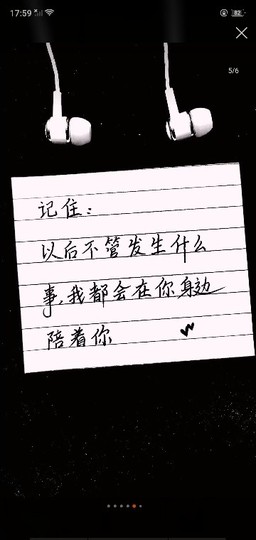 17:59
82
5/6
记住：
以后不管发生什么
事,我都会在你身边
陪着你